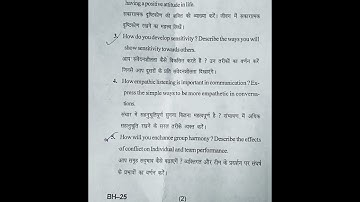 having a positive attitude in life.
सकारात्मक दृष्टिकोण की शक्ति की व्याख्या करें। जीवन में सकारात्मक
दृष्टिकोण रखने का महत्व लिखें।
3. How do you develop sensitivity ? Describe the ways you will
show sensitivity towards others.
आप संवेदनशीलता कैसे विकसित करते हैं ? इन तरीकों का वर्णन करें
जिनसे आप दूसरों के प्रति संवेदनशीलता दिखाएंगे।
4. How empathic listening is important in communication ? Ex-
press the simple ways to be more empathetic in conversa-
tions.
संचार में सहानुभूतिपूर्ण सुनना कितना महत्वपूर्ण है ? संभाषण में अधिक
सहानुभूति रखने के सरल तरीके व्यक्त करें।
5. How will you enchance group harmony ? Describe the effects
of conflict on Individual and team performance.
आप समूह सद्भाव कैसे बढ़ाएंगे ? व्यक्तिगत और टीम के प्रदर्शन पर संघर्ष
के प्रभावों का वर्णन करें।
BH-25 (2)